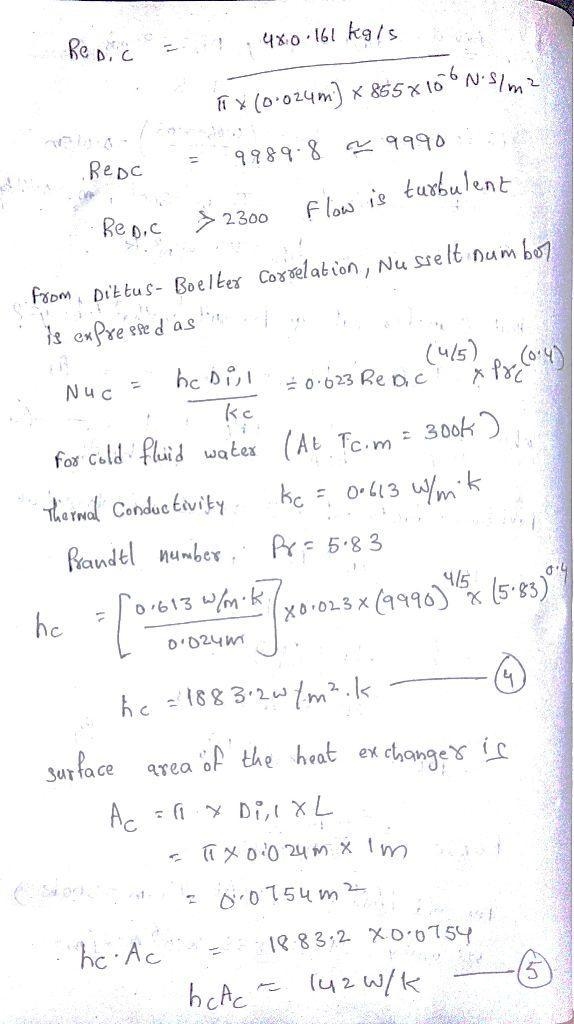 Re D,C = 4x0.161 kg/s
π x (0.024m) x 855 x 10^-6 N.S/m²
ReDC = 9989.8 ≃ 9990
Re D,C > 2300 Flow is turbulent
From, Dittus-Boelter Correlation, Nusselt number
is expressed as
Nuc = hc Di,1 / kc = 0.023 Re D,C^(4/5) x Prc^(0.4)
For cold fluid water (At Tc.m = 300k)
Thermal Conductivity kc = 0.613 W/m.k
Prandtl number, Pr = 5.83
hc = [0.613 W/m.k / 0.024m] x 0.023 x (9990)^4/5 x (5.83)^0.4
hc = 1883.2 w/m².k —— (4)
surface area of the heat exchanger is
Ac = π x Di,1 x L
= π x 0.024m x 1m
= 0.0754m²
hc.Ac = 1883.2 x 0.0754
hcAc ≃ 142 W/k —— (5)